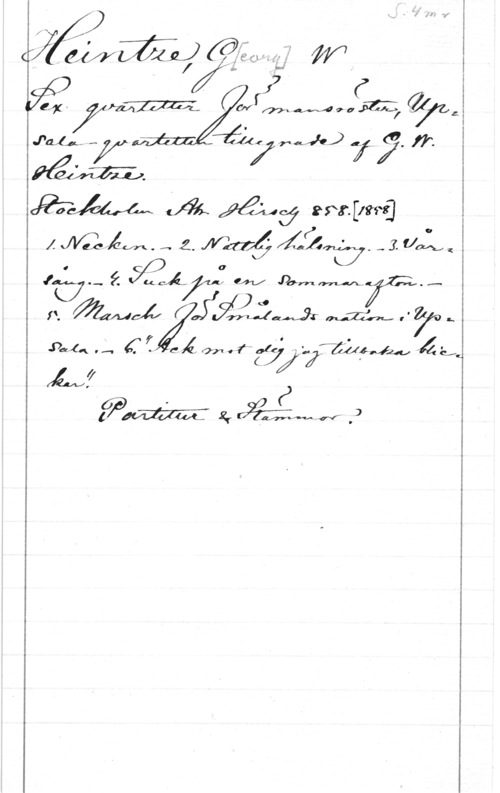 S. 4 mr
Heintze, G[eorg] W
Sex qvartetter för mansröster, Up=
sala-qvartetten tillegnade af G. W.
Heintze.
Stockholm Abr. Hirsch 858. [1858]
1. Necken. - 2. Nattlig hälsning. - 3. Vår=
sång. - 4. Suck på en sommarafton. -
5. Marsch för Smålands nation i Up=
sala. - 6. "Ack mot dig jag tillbaka blic=
kar".
Partitur & Stämmor.